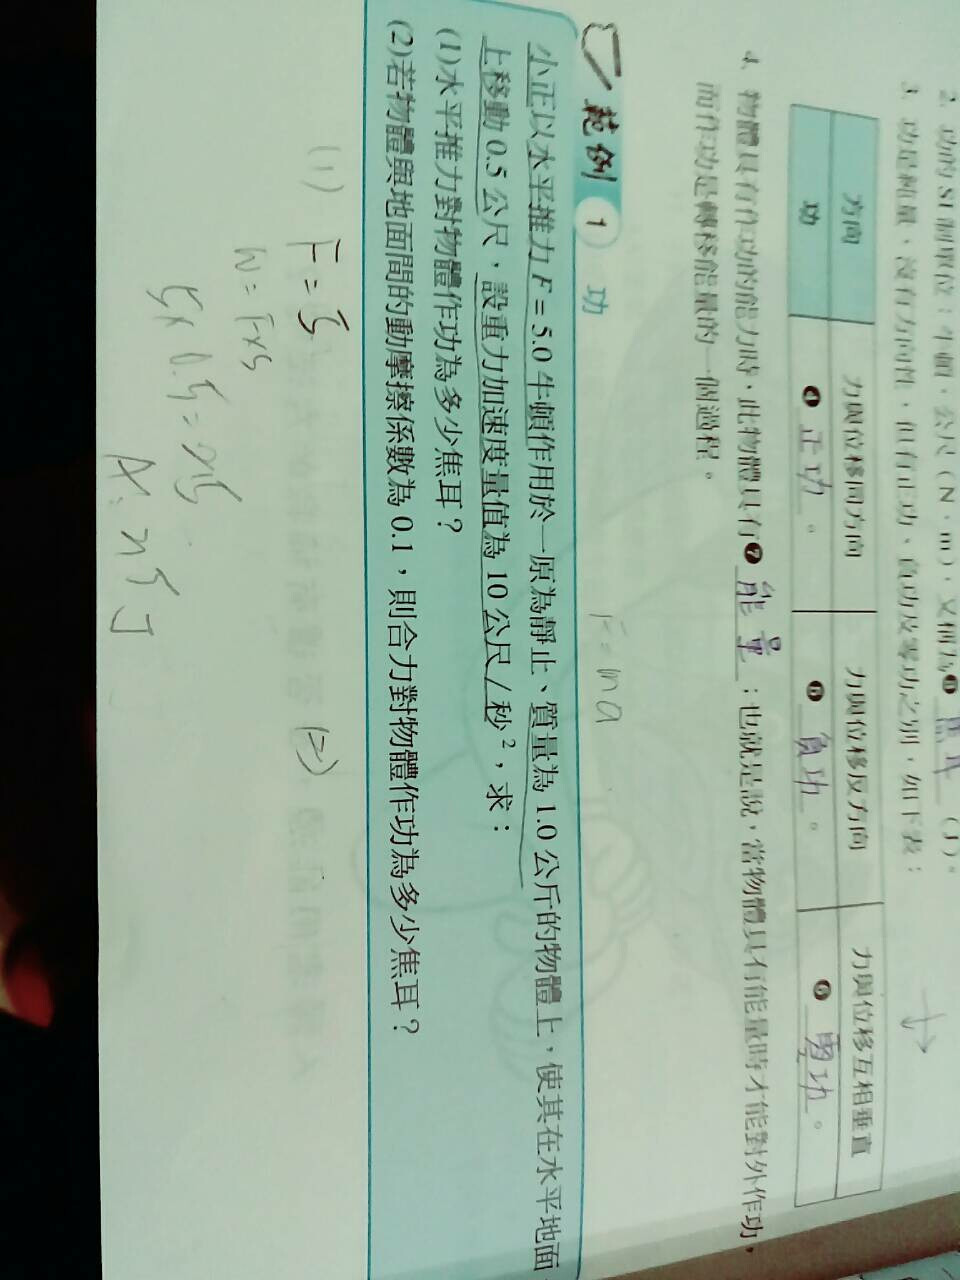 2. 功的 SI 制單位：牛頓．公尺（N．m），又稱為❶ 焦耳 （J）。
3. 功是純量，沒有方向性，但有正功、負功及零功之別，如下表：
方向 力與位移同方向 力與位移反方向 力與位移互相垂直
功 ❹ 正功 。 ❺ 負功 。 ❻ 零功 。
4. 物體具有作功的能力時，此物體具有❼ 能量 ；也就是說，當物體具有能量時才能對外作功，
而作功是轉移能量的一個過程。
F=ma
範例 1 功
小正以水平推力 F = 5.0 牛頓作用於一原為靜止、質量為 1.0 公斤的物體上，使其在水平地面
上移動 0.5 公尺，設重力加速度量值為 10 公尺/秒²，求：
(1)水平推力對物體作功為多少焦耳？
(2)若物體與地面間的動摩擦係數為 0.1，則合力對物體作功為多少焦耳？
(1) F=5 (2)
W=F×S
5×0.5=2.5
A: 2.5 J